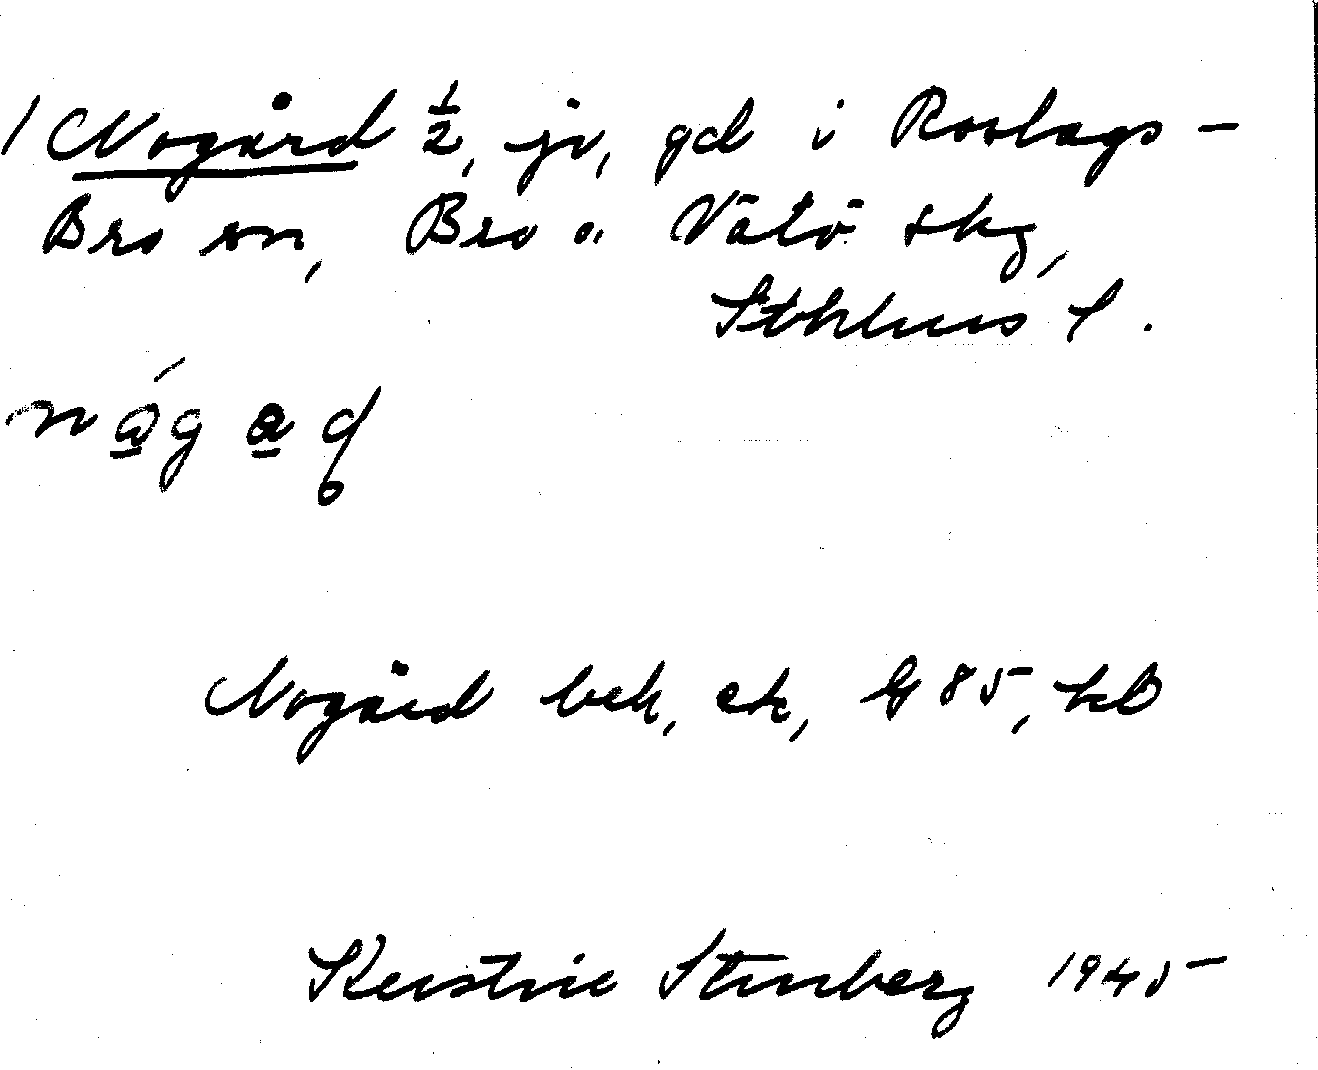 / Nogård ½, jv, gd i Roslags-
Bro sn, Bro o. Vätö skg,
Sthlms l.
nǻgaɖ
Nogård bek, ek, G 85, kb
Kerstin Stenberg 1945